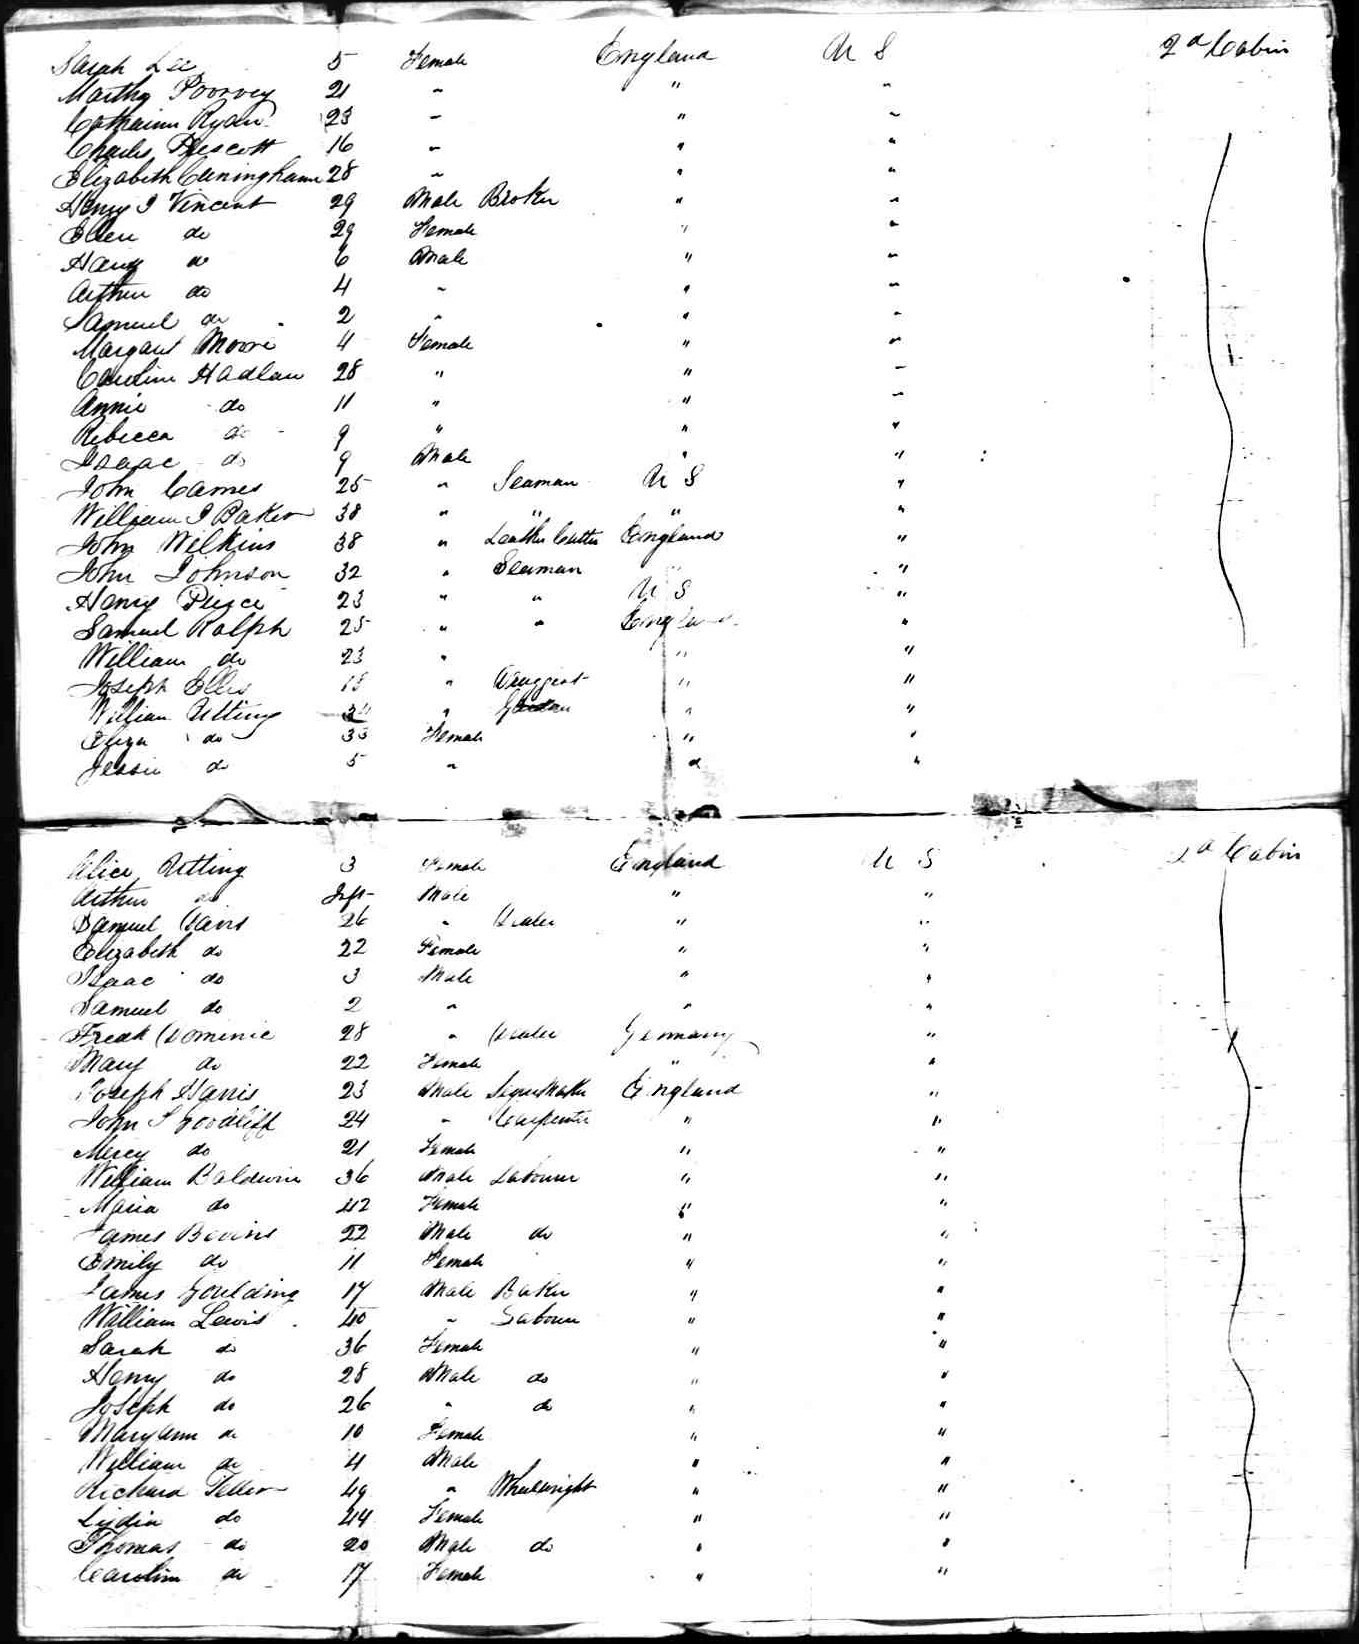 Sarah Lee 5 Female England U S 2d Cabin
Martha Poorvey 21 " " "
Catharine Ryan 23 " " "
Charles Prescott 16 " " "
Elizabeth Cuningham 28 " " "
Henry J Vincent 29 Male Broker " "
Ellen do 29 Female " "
Harry do 6 Male " "
Arthur do 4 " " "
Samuel do 2 " " "
Margaret Moore 4 Female " "
Caroline Hadlan 28 " " "
Annie do 11 " " "
Rebecca do 9 " " "
Isaac do 9 Male " "
John Carnes 25 " Seaman U S "
William J Baker 38 " " " "
John Wilkins 38 " Leather Cutter England "
John Johnson 32 " Seaman " "
Henry Pierce 23 " " U S "
Samuel Ralph 25 " " England "
William do 23 " " "
Joseph Ellis 18 " Druggist " "
William Utting 34 " " "
Eliza do 33 Female " "
Jessie do 5 " " "
Alice Utting 3 Female England U S 2d Cabin
Arthur do Inft Male " "
Samuel Davis 26 " Dealer " "
Elizabeth do 22 Female " "
Isaac do 3 Male " "
Samuel do 2 " " "
Fredk Dominic 28 " Dealer Germany "
Mary do 22 Female " "
Joseph Harris 23 Male Segar Maker England "
John S Goodliff 24 " Carpenter " "
Mercy do 21 Female " "
William Baldwin 36 Male Labourer " "
Maria do 42 Female " "
James Bevins 22 Male do " "
Emily do 11 Female " "
James Goulding 17 Male Baker " "
William Lewis 40 " Labourer " "
Sarah do 36 Female " "
Henry do 28 Male do " "
Joseph do 26 " do " "
Mary Ann do 10 Female " "
William do 4 Male " "
Richard Teller 49 " Wheelwright " "
Lydia do 44 Female " "
Thomas do 20 Male do " "
Caroline do 17 Female " "